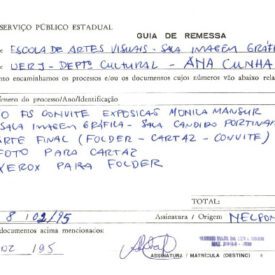 SERVIÇO PÚBLICO ESTADUAL
GUIA DE REMESSA
De ESCOLA DE ARTES VISUAIS - SALA IMAGEM GRÁFI
UERJ - DEPTº CULTURAL - ANA CUNHA
encaminhamos os processos e/ou os documentos cujos números vão abaixo rela
Número do processo/Ano/Identificação
CONVITE EXPOSIÇÃO MONICA MANSUR
SALA IMAGEM GRÁFICA - SALA CANDIDO PORTINAR
ARTE FINAL (FOLDER - CARTAZ - CONVITE)
FOTO PARA CARTAZ
XEROX PARA FOLDER
TOTAL:
8 / 02 / 95
Assinatura / Origem NELSON
documentos acima mencionados:
195
ASSINATURA / MATRÍCULA (DESTINO)